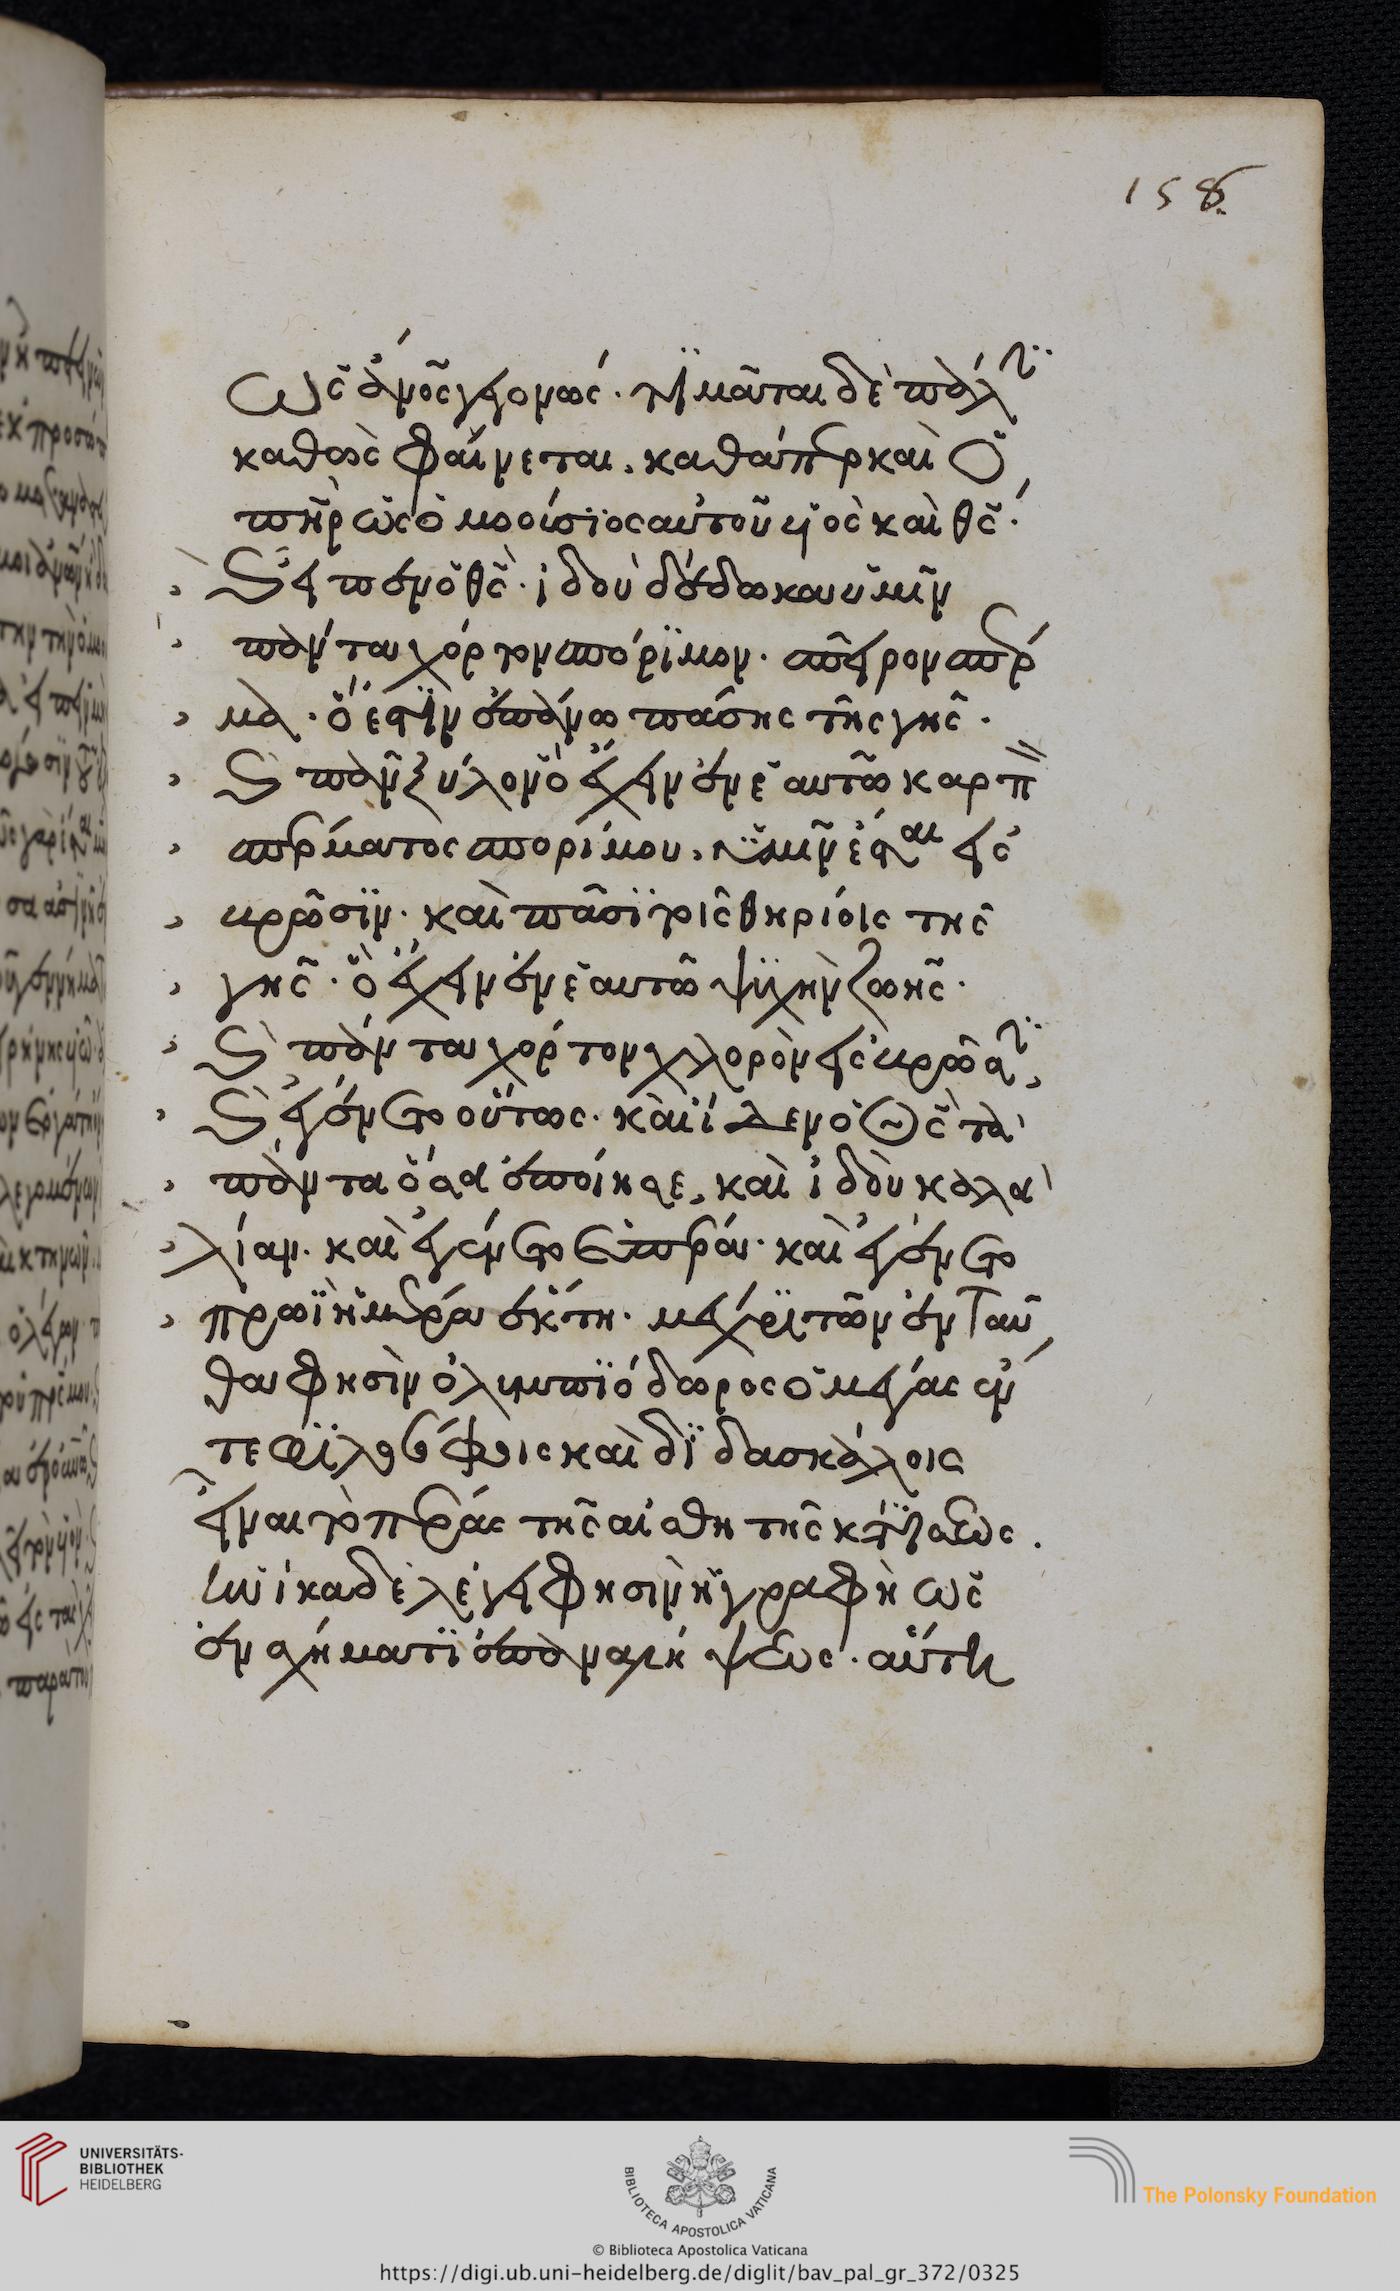 158.
ὡς ἄνος γεγονώς. τιμᾶται δὲ πάλϊ
καθὼς φαίνεται. καθάπερ καὶ ὁ
πηρ ὡς ὁμοούσϊος αὐτοῦ υἱὸς καὶ θς.
καὶ εἶπεν ὁ θς. ἰδοὺ δέδωκα ὑμῖν
πάντα χόρτον σπόρϊμον. σπεῖρον σπέρ
μα. ὅ ἐστϊν ἐπάνω πάσης τῆς γῆς.
καὶ πᾶν ξύλον ὃ ἔχει ἐν ἑαυτῶ καρπὸν
σπέρματος σπορίμου. ὑμῖν ἔσται εἰς
βρῶσϊν. καὶ πᾶσϊ τοῖς θηρίοις τῆς
γῆς. ὃ ἔχει ἐν ἑαυτῶ ψϋχὴν ζωῆς.
καὶ πάντα χόρτον χλορὸν εἰς βρῶσϊ,
καὶ ἐγένετο οὕτως. καὶ ἴδεν ὁ Θς τὰ
πάντα ὅσα ἐποίησε, καὶ ἰδοὺ καλὰ
λίαν. καὶ ἐγένετο ἑσπέρα. καὶ ἐγένετο
πρωῒ ἡμέρα ἕκτη. μέχρϊ τῶν ἐνταῦ
θα φησὶν ὀλυμπϊόδωρος ὁ μέγας ἔν
τε φϊλοσόφοις καὶ δϊδασκάλοις
εἶναι τὸ πέρας τῆς αἰσθητῆς κτίσεως.
ἡνίκα δὲ λέγει φησιν ἡ γραφὴ ὡς
ἐν σχήματϊ ἐπαναλήψεως. αὕτη
UNIVERSITÄTS-
BIBLIOTHEK
HEIDELBERG
BIBLIOTECA APOSTOLICA VATICANA
The Polonsky Foundation
© Biblioteca Apostolica Vaticana
https://digi.ub.uni-heidelberg.de/diglit/bav_pal_gr_372/0325